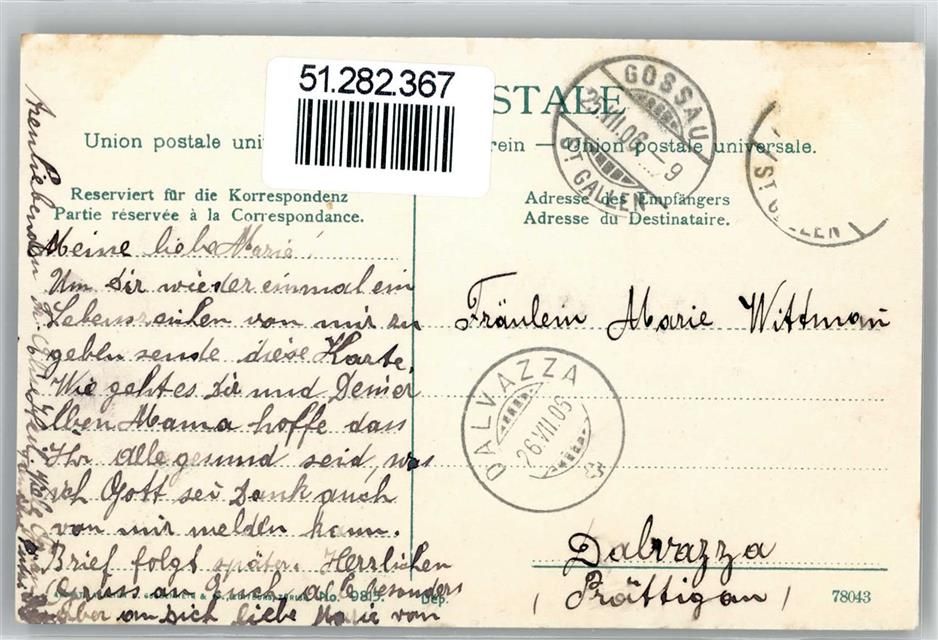 51.282.367
STALE
Union postale uni
rein — Union postale universelle.
Reserviert für die Korrespondenz
Partie réservée à la Correspondance.
Adresse des Empfängers
Adresse du Destinataire.
GOSSAU
25.VII.06. - 9
ST. GALLEN
ST. GALLEN
Meine liebe Marie!
Um Dir wieder einmal ein
Lebenszeichen von mir zu
geben sende diese Karte.
Wie geht es Dir und Deiner
lben Mama hoffe dass
Ihr alle gesund seid, was
ich Gott sei Dank auch
von mir melden kann.
Brief folgt später. Herzlichen
Gruss an Euch alle besonders
aber an dich liebe Marie von
Fräulein Marie Wittman
DALVAZZA
26.VII.06
Dalvazza
(Prättigau)
No. 9815.
Dép.
78043